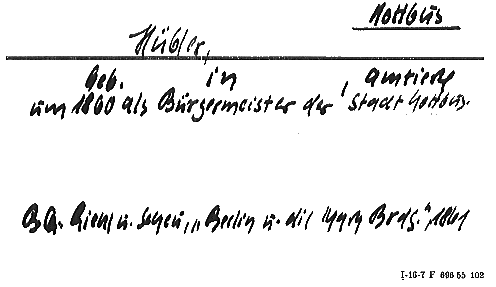 Kottbus
Hübler,
Geb. in , amtierte
um 1860 als Bürgermeister der Stadt Kottbus.
u. „Berlin u. die Mark Brdg.", 1861
I-16-7 F 696 55 102